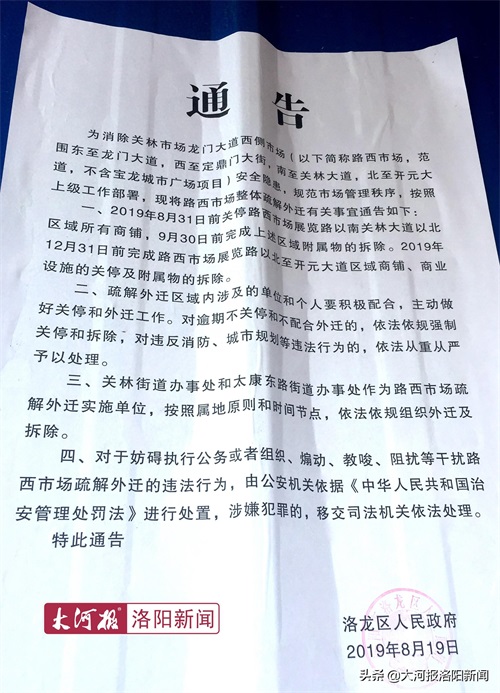 通告
为消除关林市场龙门大道西侧市场（以下简称路西市场，范
围东至龙门大道，西至定鼎门大街，南至关林大道，北至开元大
道，不含宝龙城市广场项目）安全隐患，规范市场管理秩序，按照
上级工作部署，现将路西市场整体疏解外迁有关事宜通告如下：
一、2019年8月31日前关停路西市场展览路以南关林大道以北
区域所有商铺，9月30日前完成上述区域附属物的拆除。2019年
12月31日前完成路西市场展览路以北至开元大道区域商铺、商业
设施的关停及附属物的拆除。
二、疏解外迁区域内涉及的单位和个人要积极配合，主动做
好关停和外迁工作。对逾期不关停和不配合外迁的，依法依规强制
关停和拆除，对违反消防、城市规划等违法行为的，依法从重从严
予以处理。
三、关林街道办事处和太康东路街道办事处作为路西市场疏
解外迁实施单位，按照属地原则和时间节点，依法依规组织外迁及
拆除。
四、对于妨碍执行公务或者组织、煽动、教唆、阻扰等干扰路
西市场疏解外迁的违法行为，由公安机关依据《中华人民共和国治
安管理处罚法》进行处置，涉嫌犯罪的，移交司法机关依法处理。
特此通告
大河报 洛阳新闻
洛龙区人民政府
2019年8月19日
头条@大河报洛阳新闻